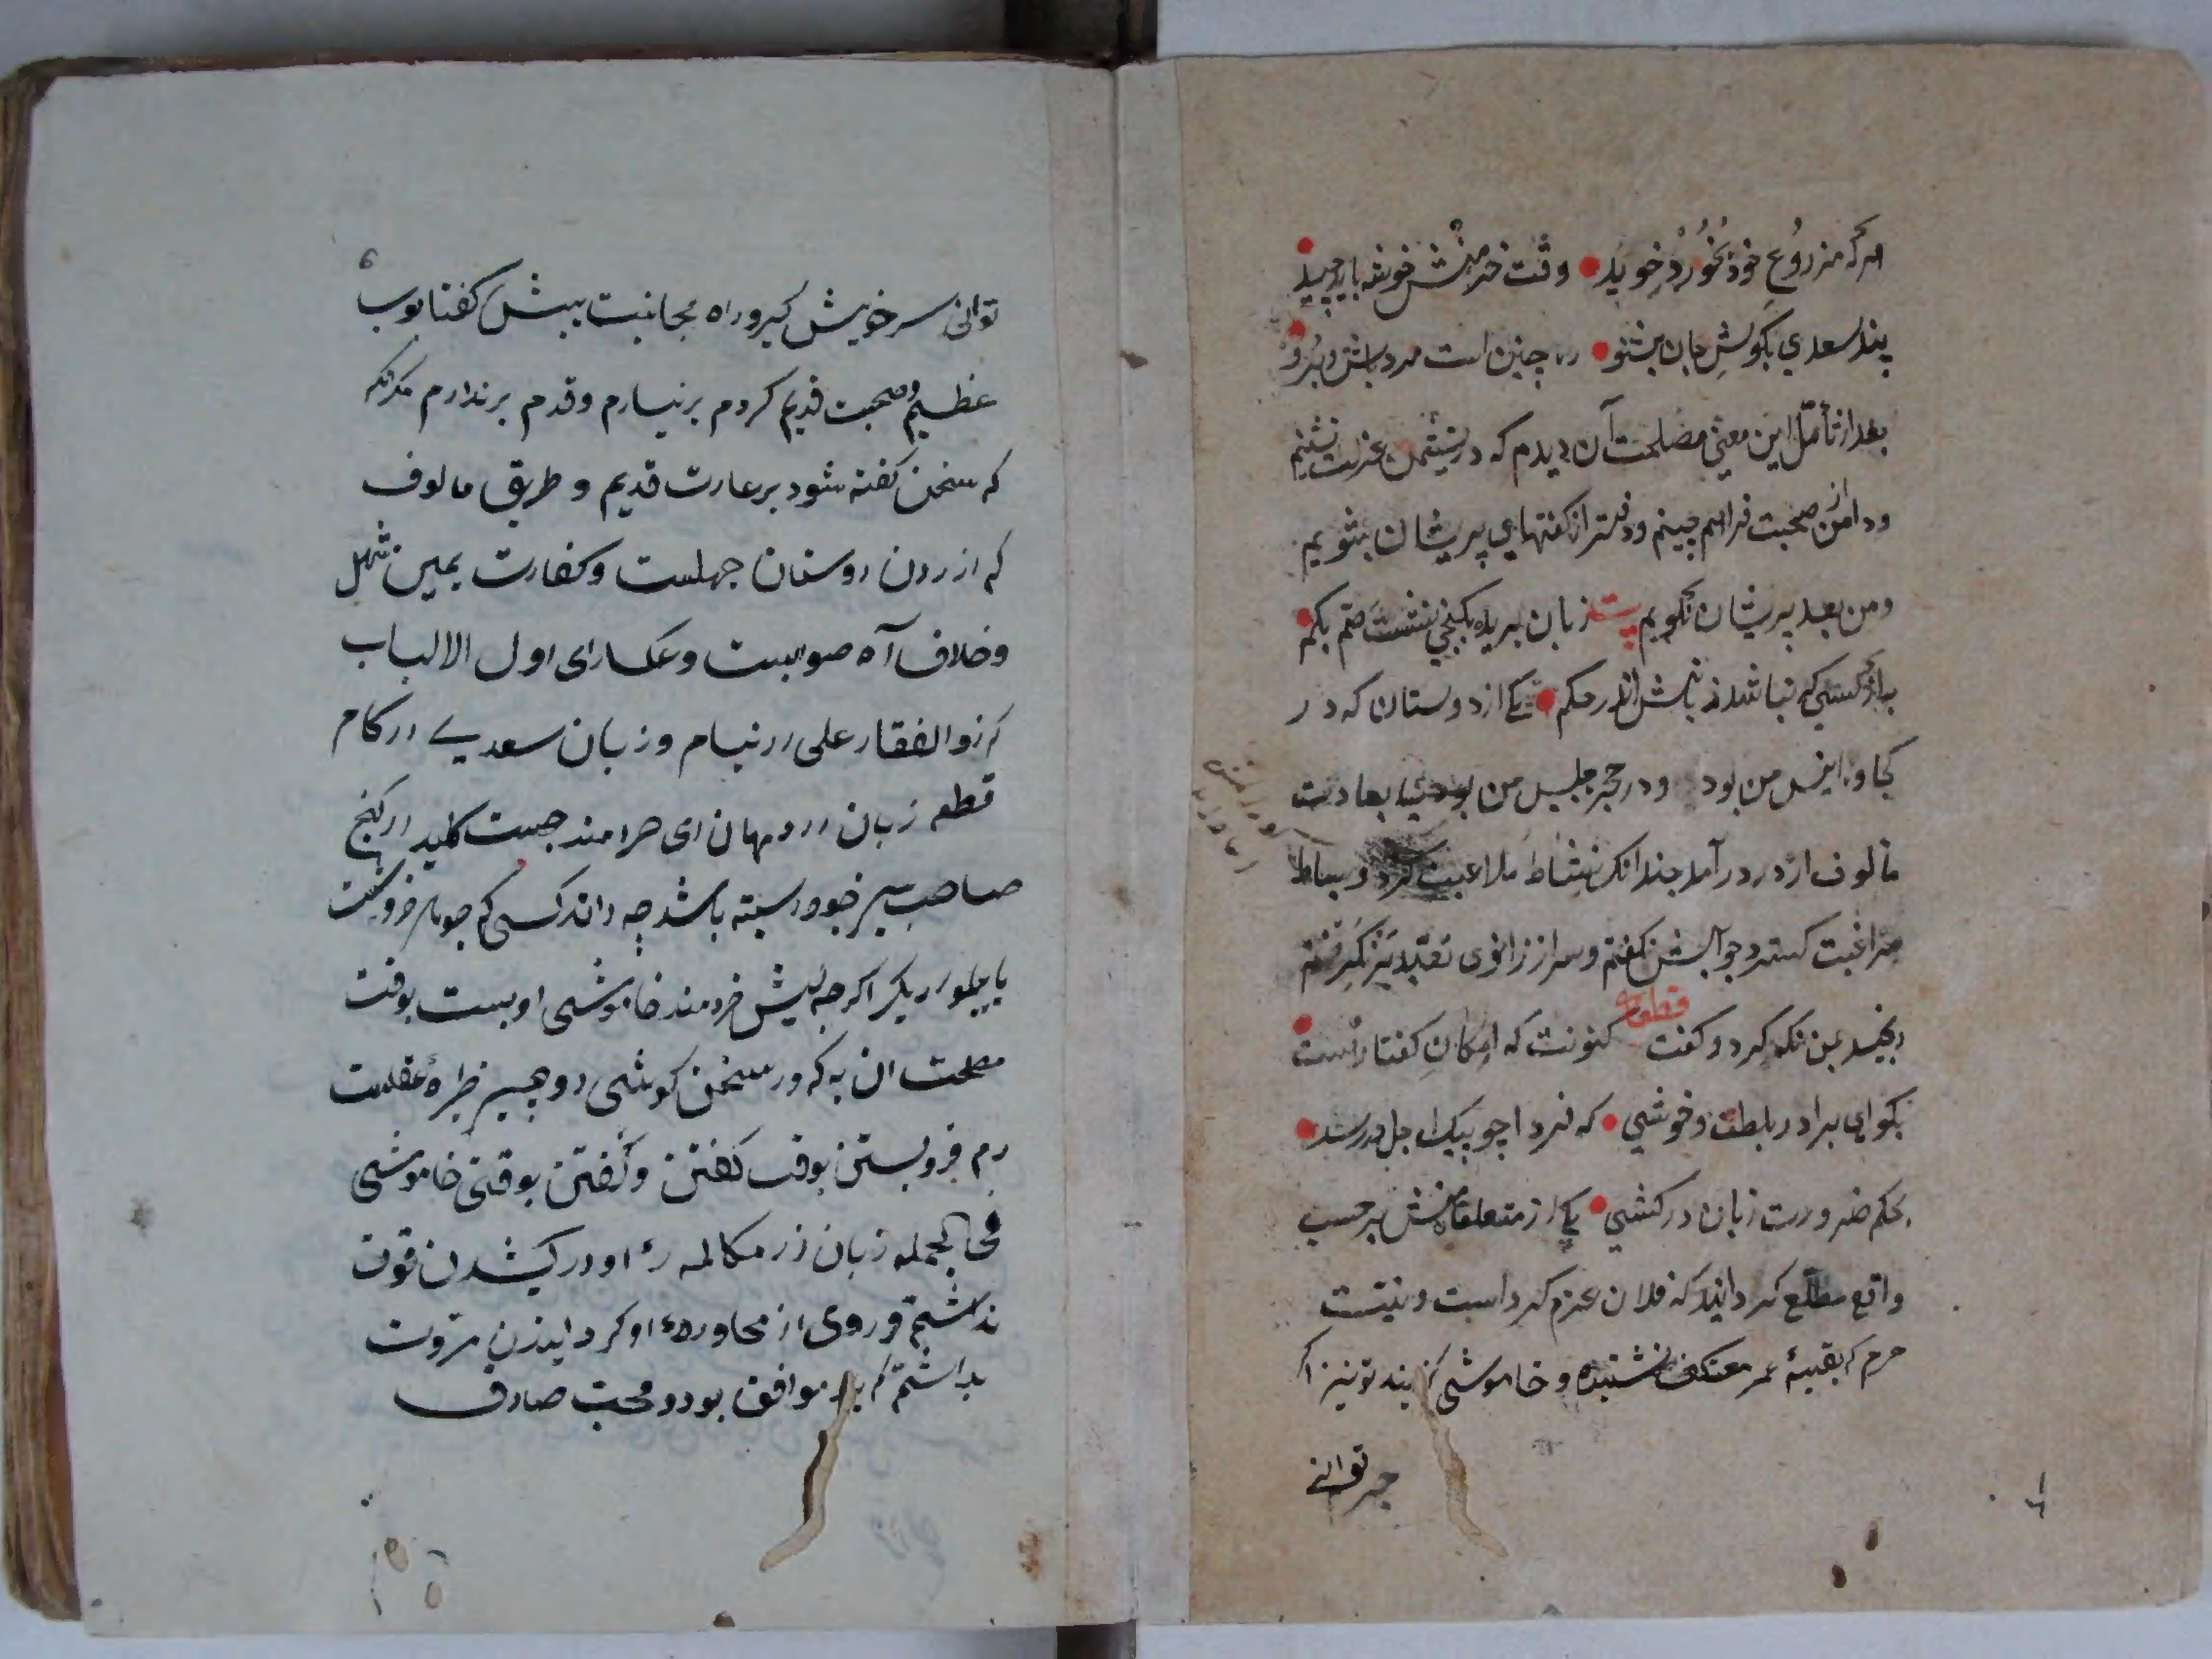 هرکه مزروع خود بخورد خوید وقت خرمنش خوشه باید چید
پند سعدی بکوش جان بشنو ره چنین است مرد باش و برو
بعد از تأمل این معنی مصلحت آن دیدم که در نشیمن عزلت نشینم
و دامن از صحبت فراهم چینم و دفتر از کفتهای پریشان بشویم
و من بعد پریشان نکویم بیت زبان بریده بکنجی نشسته صم بکم
به از کسی که نباشد زبانش اندر حکم یکی از دوستان که در
کجاوه انیس من بود و در حجره جلیس من بود بعادت
مالوف از در درآمد چندانک نشاط ملاعبت کرد و بساط
مراغبت کسترد جوابش نکفتم و سر از زانوی تعبد برنکرفتم
رنجیده بمن نکه کرد و کفت قطعه کنونت که امکان کفتار است
بکو ای برادر بلطف و خوشی که فردا چو پیک اجل در رسد
بحکم ضرورت زبان درکشی یکی از متعلقانش برحسب
واقع مطلع کردانید که فلان عزم کرد است و نیت
جزم که بقیهٔ عمر معتکف نشیند و خاموشی کزیند تو نیز اکر
توانی
توانی سر خویش کیر و راه مجانبت پیش کفتا بوب
عظیم و صحبت قدیم کردم برنیارم و قدم برندارم مکرکه
که سخن کفته شود بر عادت قدیم و طریق مالوف
که ازردن دوستان جهلست و کفارت یمین سهل
و خلاف راه صوابست و عکس رای اول الالباب
که ذوالفقار علی در نیام و زبان سعدی در کام
قطعه زبان در دهان ای خردمند چیست کلید در کنج
صاحب هنر چو در بسته باشد چه داند کسی که جوهر فروشست
یا پیلور ریک اکرچه پیش خردمند خاموشی ادبست بوقت
مصلحت ان به که در سخن کوشی دو چیز طیره عقلست
دم فرو بستن بوقت کفتن و کفتن بوقت خاموشی
فی الجمله زبان از مکالمه او در کشیدن قوت
نداشتم و روی از محاوره او کردانیدن مروت
نداشتم که یار موافق بود و محب صادق